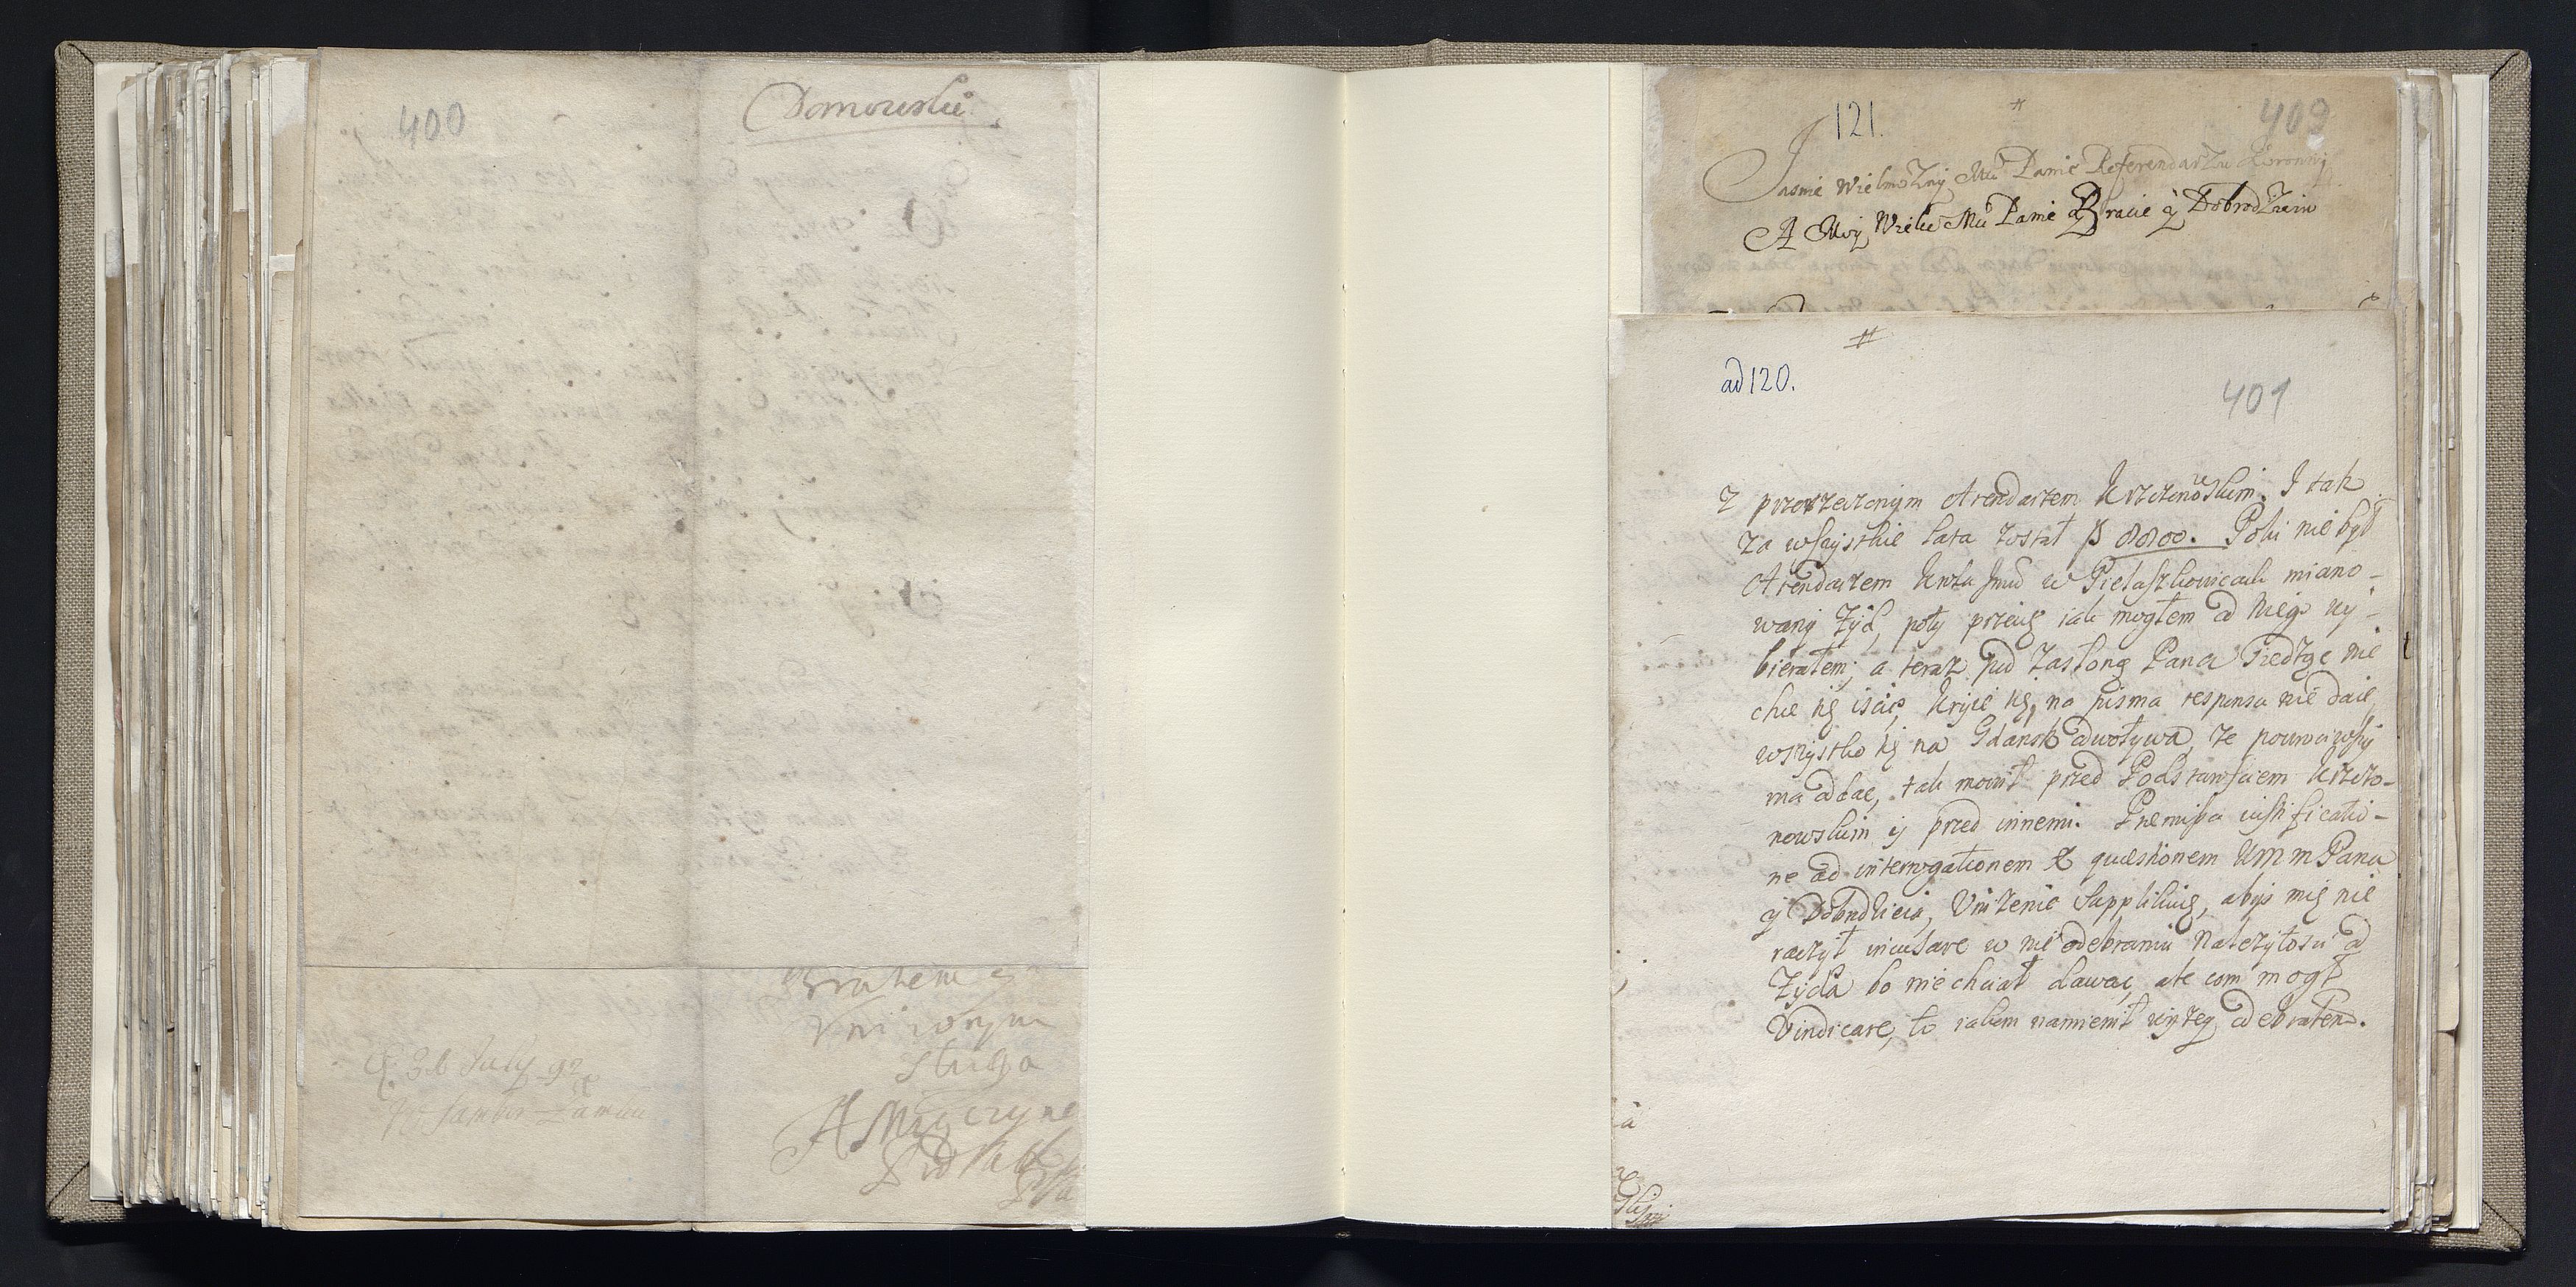 400
Domowski
Bratem y
Uniżonym
Sługa
A Mączyns
E 26 July 92
121.
409
Jasnie Wielmożny Mci Panie Referendarzu Koronny
A Moy Wielce Mci Panie y Bracie y Dobrodzieiu
ad 120.
401
z przerzeczonym Arendarzem Krzczonowskim. I tak
za wszystkie lata został
Poki nie był
Arendarzem w Pielaszkowicach miano-
wany Żyd, poty przecię iak mogłem od niego wy-
bierałem; a teraz pod zasłoną Pana
nie
chce się iścić, kryie się, na pisma responsu nie daie,
wszystko się na Gdansk odwoływa, że powrociwszy
ma oddac, tak mowił przed Podstarościem Krzczo-
nowskim y przed innemi. Praemissa iustificatio-
ne ad interrogationem & quaestionem WMM Pana
y Dobrodzieia, Uniżenie supplikuię, abys mię nie
raczył incusare w nie odebraniu należytosci od
Żyda bo nie chciał dawac, ale com mogł
Vindicare, to iakom namienił wyżey, odebrałem.